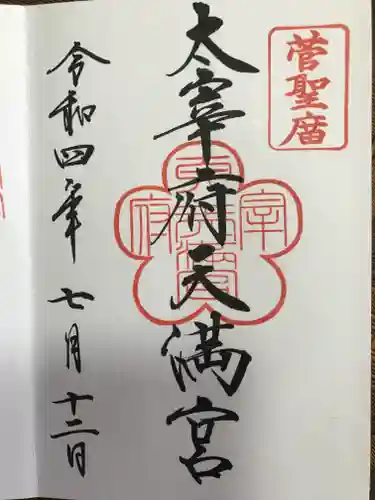 菅聖廟
太宰府天満宮
令和四年七月十二日